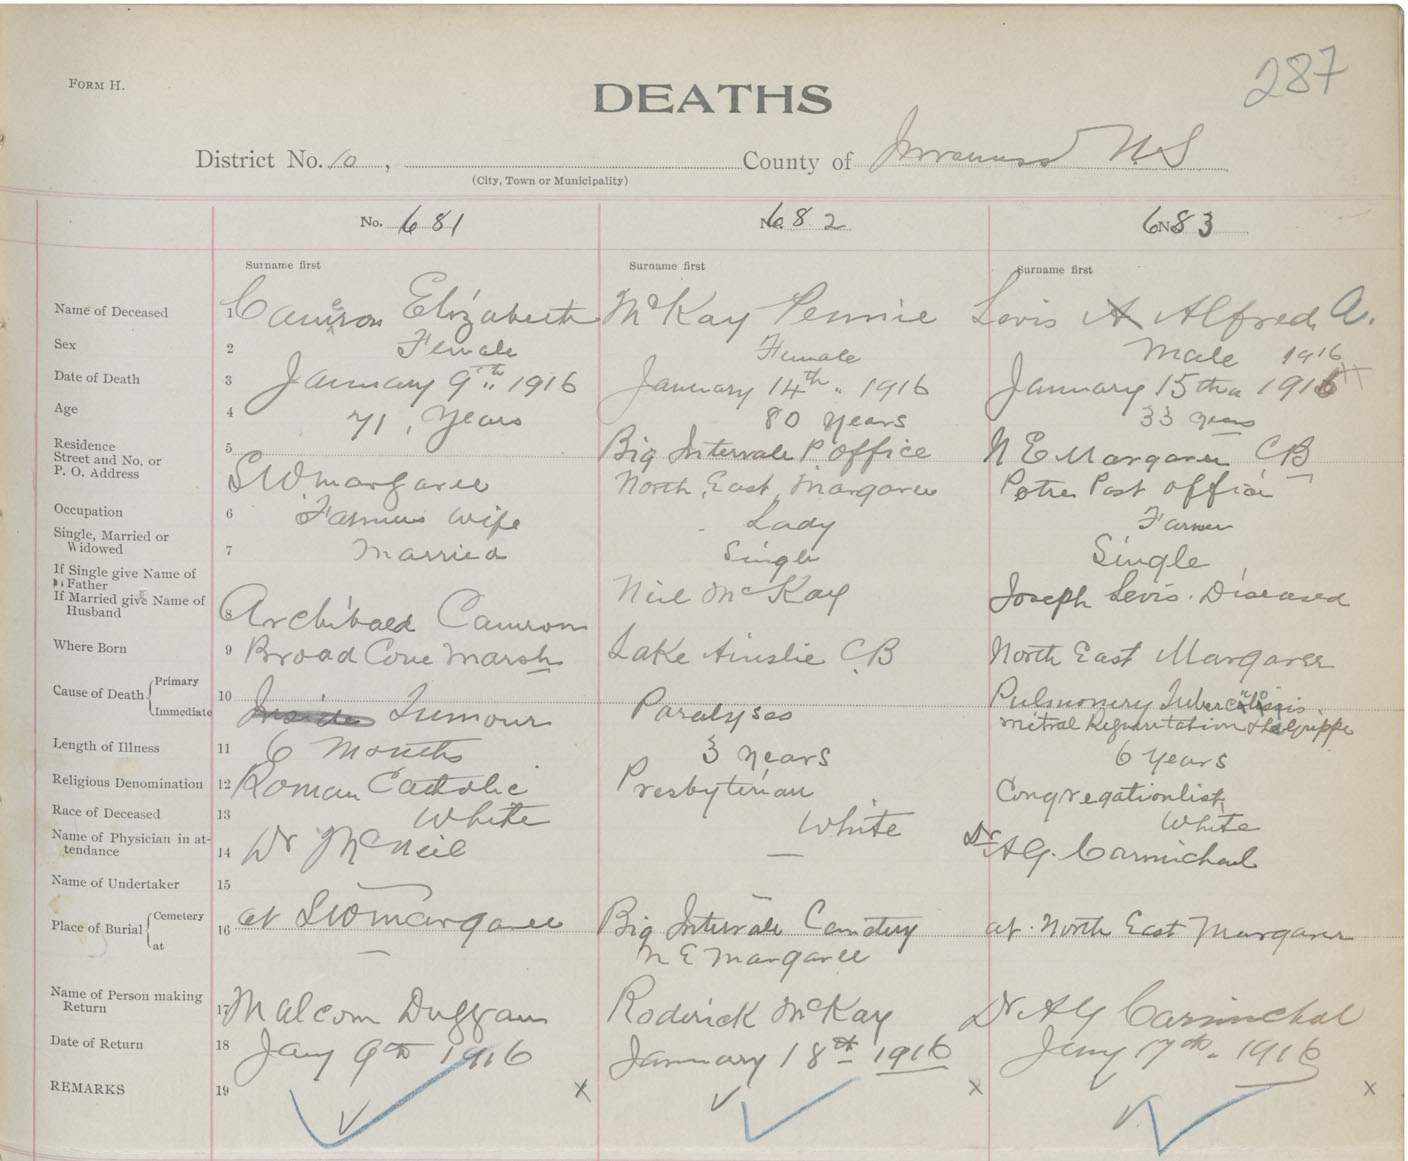 287
FORM H.
DEATHS
District No. 10, County of Inverness N.S
(City, Town or Municipality)
No. 681 No. 682 No. 683
Surname first Surname first Surname first
Name of Deceased 1 Cameron Elizabeth McKay Pennie Levis Alfred A.
Sex 2 Female Female Male 1916
Date of Death 3 January 9th 1916 January 14th 1916 January 15th 1916
Age 4 71, Years 80 Years 33 Years
Residence
Street and No. or
P. O. Address
5 S W Margaree Big Intervale P. Office N E Margaree CB
North East Margaree Post office
Occupation 6 Farmers Wife Lady Farmer
Single, Married or
Widowed
7 Married Single Single
If Single give Name of
Father
If Married give Name of
Husband
8 Archibald Cameron Neil McKay Joseph Levis. Diseased
Where Born 9 Broad Cove Marsh Lake Ainslie CB North East Margaree
Cause of Death Primary
Immediate
10 Inside Tumour Paralyses Pulmonery Tuberculosis.
mitral Regurutation & LaGrippe
Length of Illness 11 6 Months 3 Years 6 Years
Religious Denomination 12 Roman Catholic Presbyterian Congregationlist
Race of Deceased 13 White White White
Name of Physician in at-
tendance
14 Dr McNeil — Dr A G. Carmichael
Name of Undertaker 15
Place of Burial Cemetery
at
16 at S W Margaree Big Intervale Cemetery at North East Margaree
— N E Margaree
Name of Person making
Return
17 Malcom Duggan Roderick McKay Dr A G Carmichal
Date of Return 18 Jany 9th 1916 January 18th 1916 Jany 17th. 1916
REMARKS 19 x x x